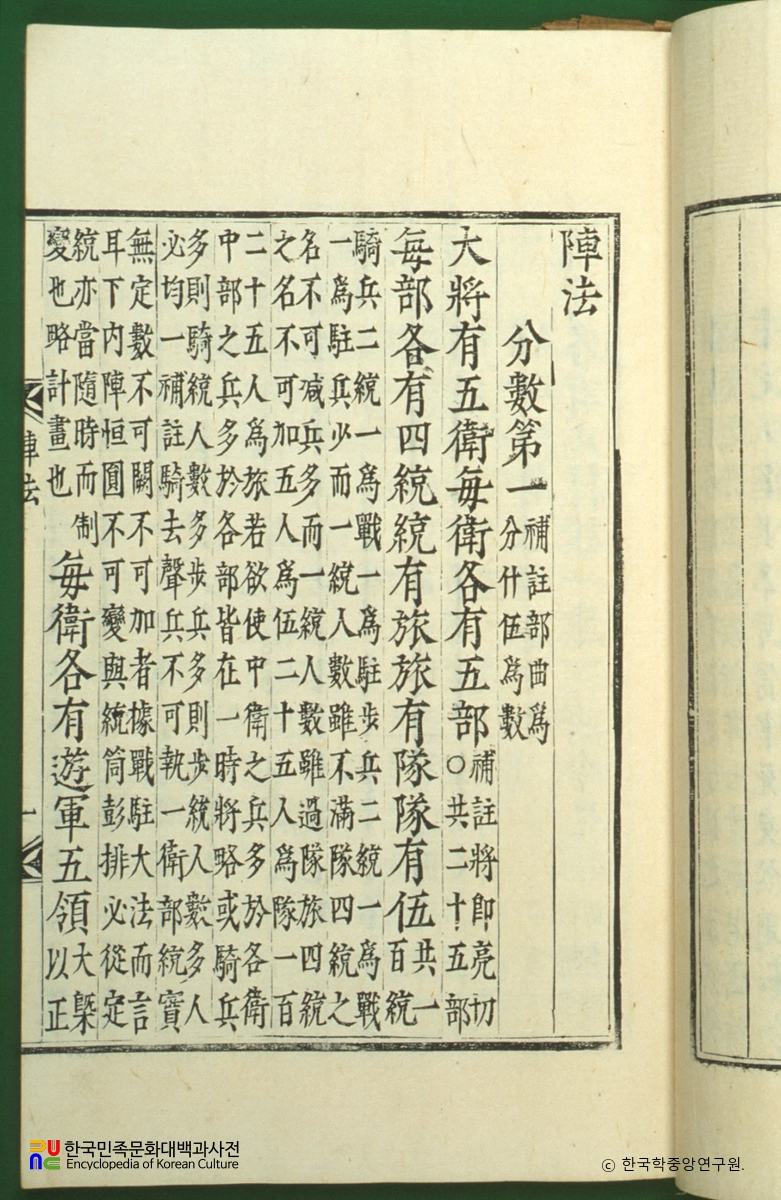 陣法
分數第一
補註部曲爲
分什伍爲數
大將有五衛每衛各有五部
補註將即亮切
○共二十五部
每部各有四統統有旅旅有隊隊有伍
共一
百統
騎兵二統一爲戰一爲駐步兵二統一爲戰
一爲駐兵少而一統人數雖不滿隊四統之
名不可减兵多而一統人數雖過隊旅四統
之名不可加五人爲伍二十五人爲隊一百
二十五人爲旅若欲使中衛之兵多於各衛
中部之兵多於各部皆在一時將略或騎兵
多則騎統人數多步兵多則步統人數多人
必均一補註騎去聲兵不可執一衛部統實
無定數不可闕不可加者據戰駐大法而言
耳下內陣恒圓不可變與統筒彭排必從定
統亦當隨時而制
變也略計畫也
每衛各有遊軍五領
大槩
以正
陣法
一
한국민족문화대백과사전
Encyclopedia of Korean Culture
ⓒ 한국학중앙연구원.